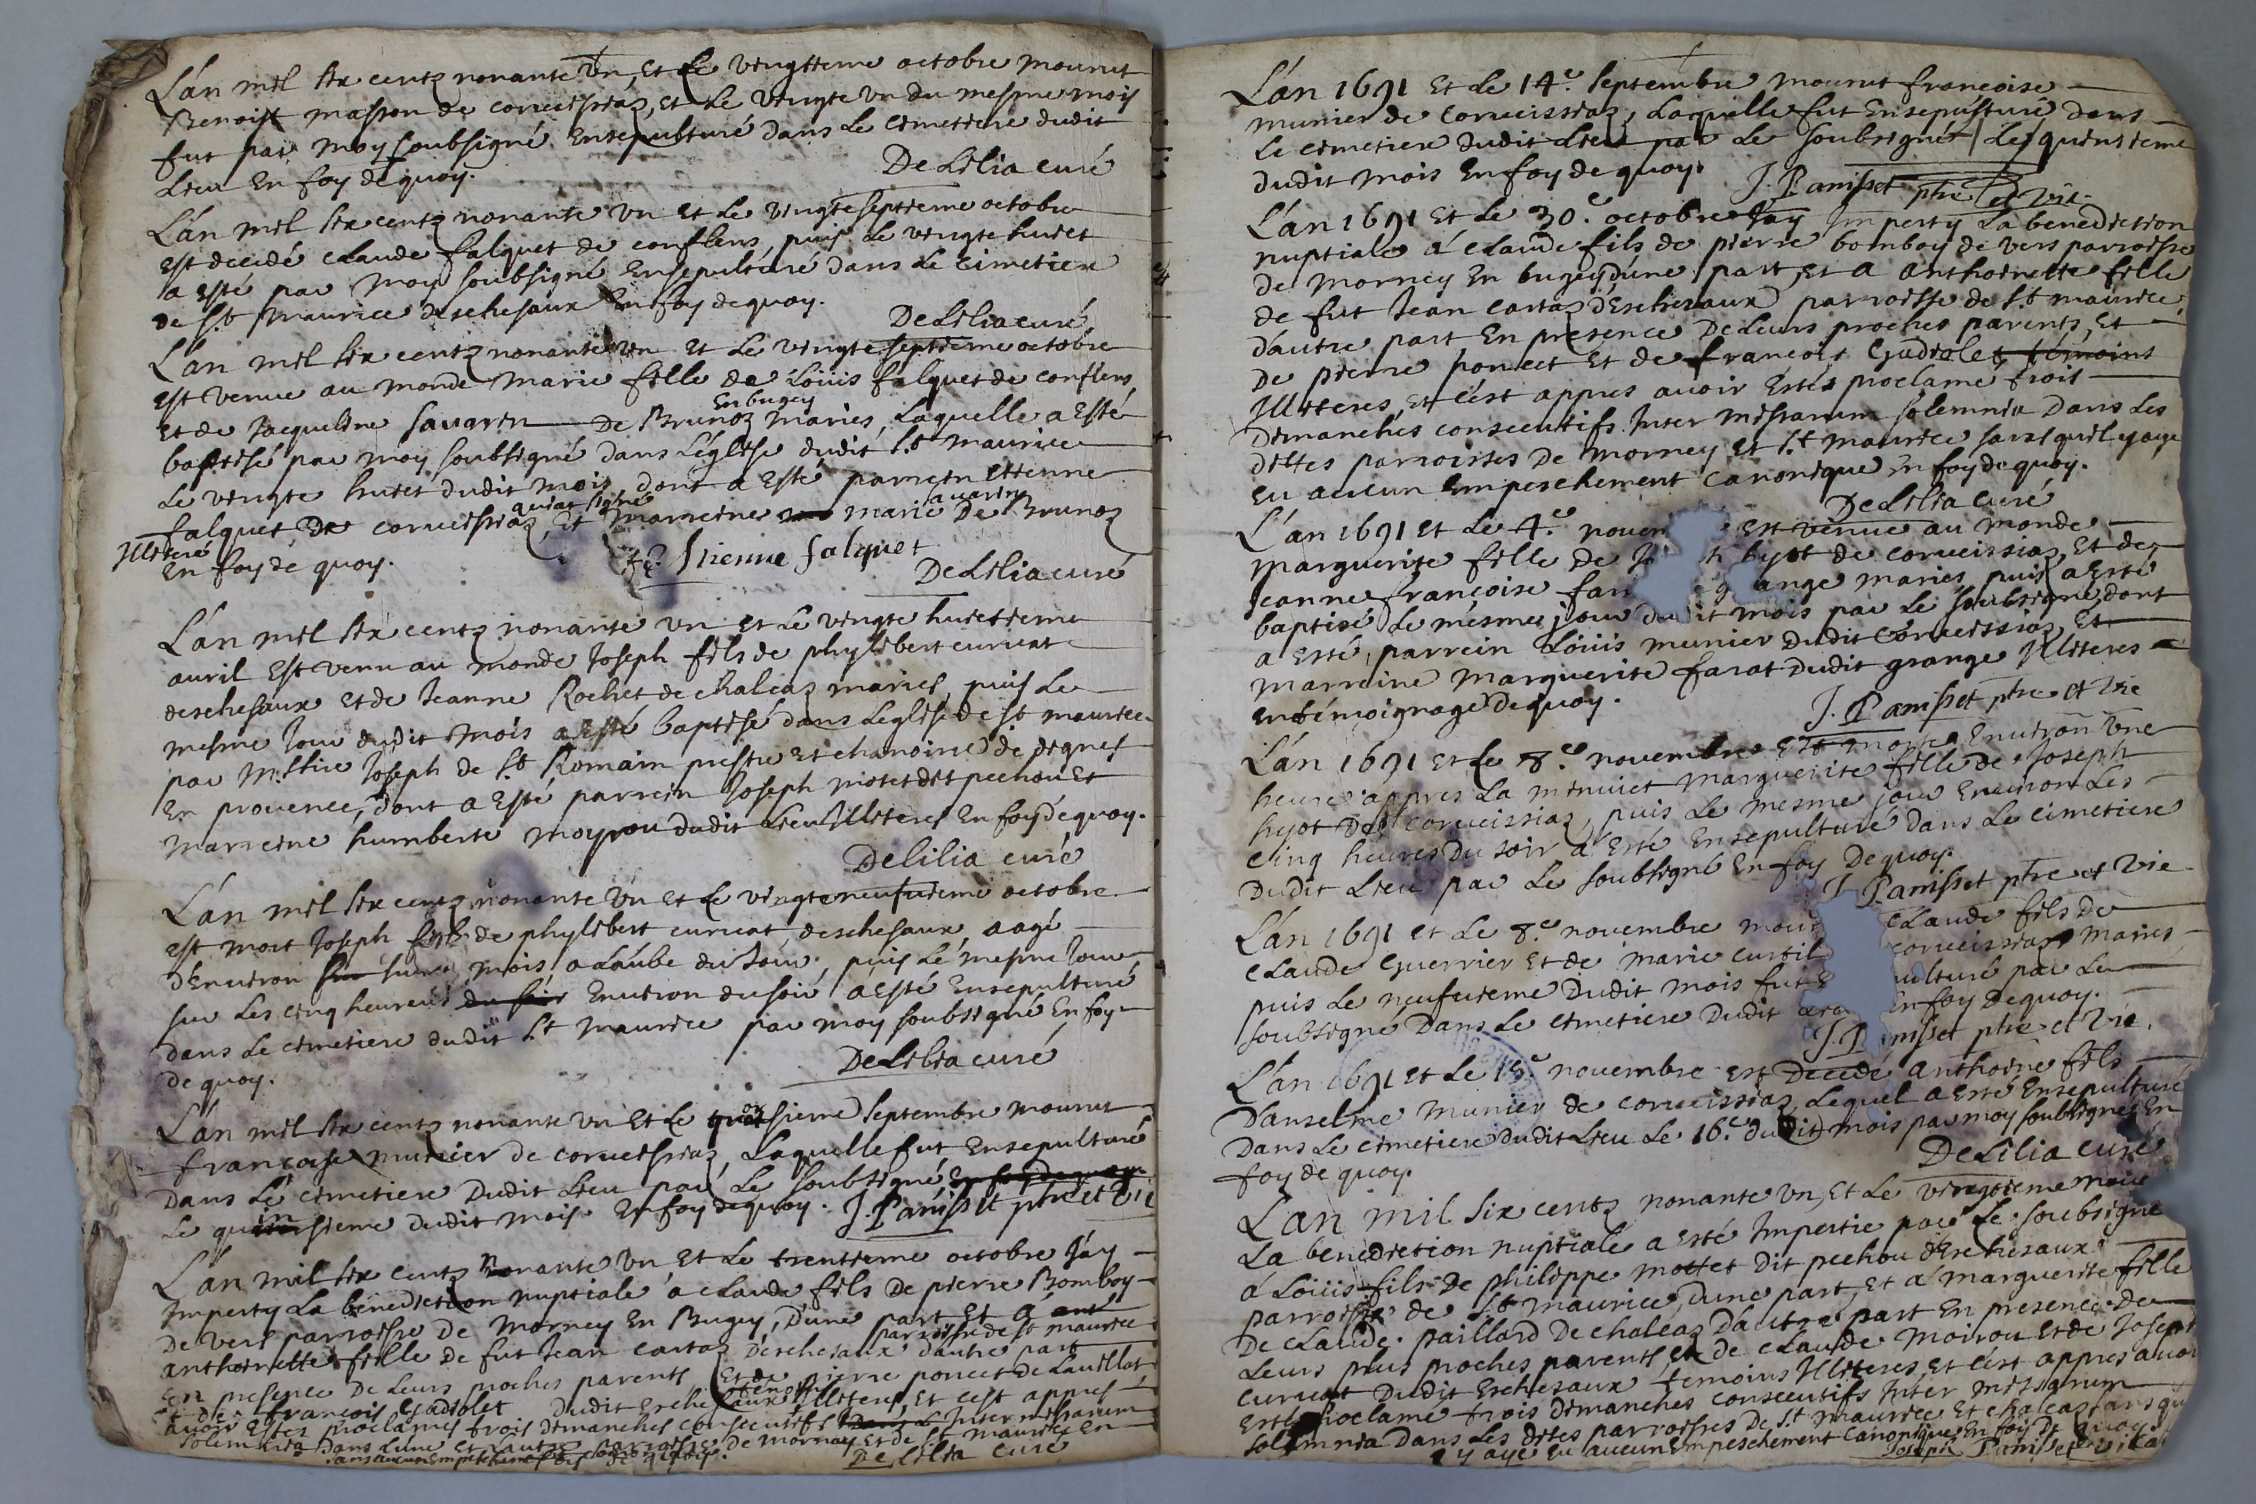 L'an mil six centz nonante un, et le vingtieme octobre mourut
Benoist masson de corveissiaz, et le vingte un du mesme mois
fut par moy soubsigné ensepulturé dans le cimetiere dudit
lieu en foy de quoy.
De Lilia curé
L'an mil six centz nonante un et le vingte septieme octobre
est decedé claude falquet de conflens, puis le vingte huict
a esté par moy soubsigné ensepulturé dans le cimetier
de St maurice deschesaux en foy de quoy.
De Lilia curé
L'an mil six centz nonante un et le vingte septieme octobre
est venue au monde marie fille de Loüis falquet de conflens,
en bugey
et de Jacqueline savarin de Brunoz mariés, Laquelle a esté
baptisé par moy soubsigné dans L'eglise dudit St maurice
Le vingte huict dudit mois, dont a esté parrein ettienne
qui at signé
savarin
falquet de corveissiaz, et marreine marie de Brunoz
Illitere
en foy de quoy.
Etienne falquet
De Lilia curé
L'an mil six centz nonante un et le vingte huictieme
avril est venu au monde Joseph fils de phylibert curvat
deschesaux et de Jeanne Rochet de chaleaz mariés, puis le
mesme Jour dudit mois a esté baptisé dans L'eglise de St maurice
par Mre Joseph de St Romain prestre et chanoine de dignes
en provence, dont a esté parrein Joseph motet dit pechou et
marreine humberte moyrou dudit lieu Illiteres en foy de quoy.
De Lilia curé
L'an mil six centz nonante un et le vingte neufvieme octobre
est mort Joseph fils de phylibert curvat, deschesaux, aagé
d'environ six mois a L'aube du Jour, puis le mesme Jour
sur les cinq heures du soir environ du soir a esté ensepulturé
dans le cimetiere dudit St maurice par moy soubsigné en foy
de quoy.
De Lilia curé
L'an mil six centz nonante un et le quatorsieme septembre mourut
françoise munier de corveissiaz, Laquelle fut ensepulturé
dans le cimetiere dudit lieu par le soubsigné en foy de quoy
le quinsieme dudit mois en foy de quoy. J. Panisset ptre et vic
L'an mil six centz nonante un et le trentieme octobre J'ay
Imperty La benediction nuptiale a claude fils de pierre Bomboy
de vers parroisse de Morney en Bugey, d'une part et a ant
parroisse de St maurice
anthoinette fille de fut Jean cartaz deschesaux d'autre part
en presence de leurs proches parents et de pierre poncet de Lavillat
témoins
et de françois Gadiolet dudit eschesaux Illiteres, et c'est appres
avoir estez proclamés trois dimanches consecutifs Inter missarum
solemnia dans l'une et l'autre parroisse de mornay et de St maurice en
sans aucun empechement foy de quoy.
De Lilia curé
L'an 1691 et le 14e septembre mourut françoise
munier de corveissiaz, Laquelle fut ensepulturé dans
le cimetier dudit lieu par le soubsigné le quinsieme
dudit mois en foy de quoy.
J. Panisset ptre et vic.
L'an 1691 et le 30e octobre J'ay Imperty La benediction
nuptiale à claude fils de pierre bomboy de vers parroisse
de Morney en bugey d'une part, et a anthoinette fille
de fut Jean cartaz d'Eschezaux parroisse de St maurice
d'autre part en presence de leurs proches parents, et
de pierre poncet et de françois Gadiolet, témoins
Illiteres, et c'est appres avoir estés proclamé trois
dimanches consecutifs Inter missarum solemnia dans les
dittes parroisses de Morney et St maurice sans qu'il y aye
eu aucun empeschement canonique en foy de quoy.
De Lilia curé
L'an 1691 et le 4e novem est venue au monde
marguerite fille de hyot de corveissiaz et de
Jeanne françoise far grange mariés, puis a esté
baptisé le mesme jour dudit mois par le soubsigné dont
a esté parrein Loüis munier dudit corveissiaz, et
marreine marguerite farat dudit grange Illiteres
en témoignage de quoy.
J. Panisset ptre et vic
L'an 1691 et le 8e novembre est morte environ une
heure appres la minuict marguerite fille de Joseph
hyot de corveissiaz, puis le mesme jour environ les
cinq heures du soir a esté ensepulturé dans le cimetiere
dudit lieu par le soubsigné en foy de quoy.
J. Panisset ptre et vic
L'an 1691 et le 8e novembre mou claude fils de
claude Guerrier et de marie curtil corveissiaz mariés
puis le neufvieme dudit mois fut e ulturé par le
soubsigné dans le cimetiere dudit en foy de quoy.
J. P nisset ptre et vic.
L'an 1691 et le 15e novembre est decedé anthoine fils
d'anselme munier de corveissiaz, Lequel a esté ensepulturé
dans le cimetiere dudit lieu le 16e dudit mois par moy soubsigné en
foy de quoy.
De Lilia curé
L'an mil six centz nonante un, et le vingtieme nove
La benediction nuptiale a esté Impertie par le soubsigné
à Loüis fils de philippe mottet dit pechou d'Eschezaux
parroisse de St maurice, d'une part, et à marguerite fille
de claude paillard de chaleaz d'autre part en presence de
leurs plus proches parents et de claude moirou et de Joseph
curvat dudit Eschezaux temoins Illiteres, et c'est appres avoir
esté proclamé trois dimanches consecutifs Inter missarum
solemnia dans les dites parroisses de St maurice et chaleaz sans qu
y aye eu aucun empeschement canonique en foy de quoy.
Joseph Panisset vicai